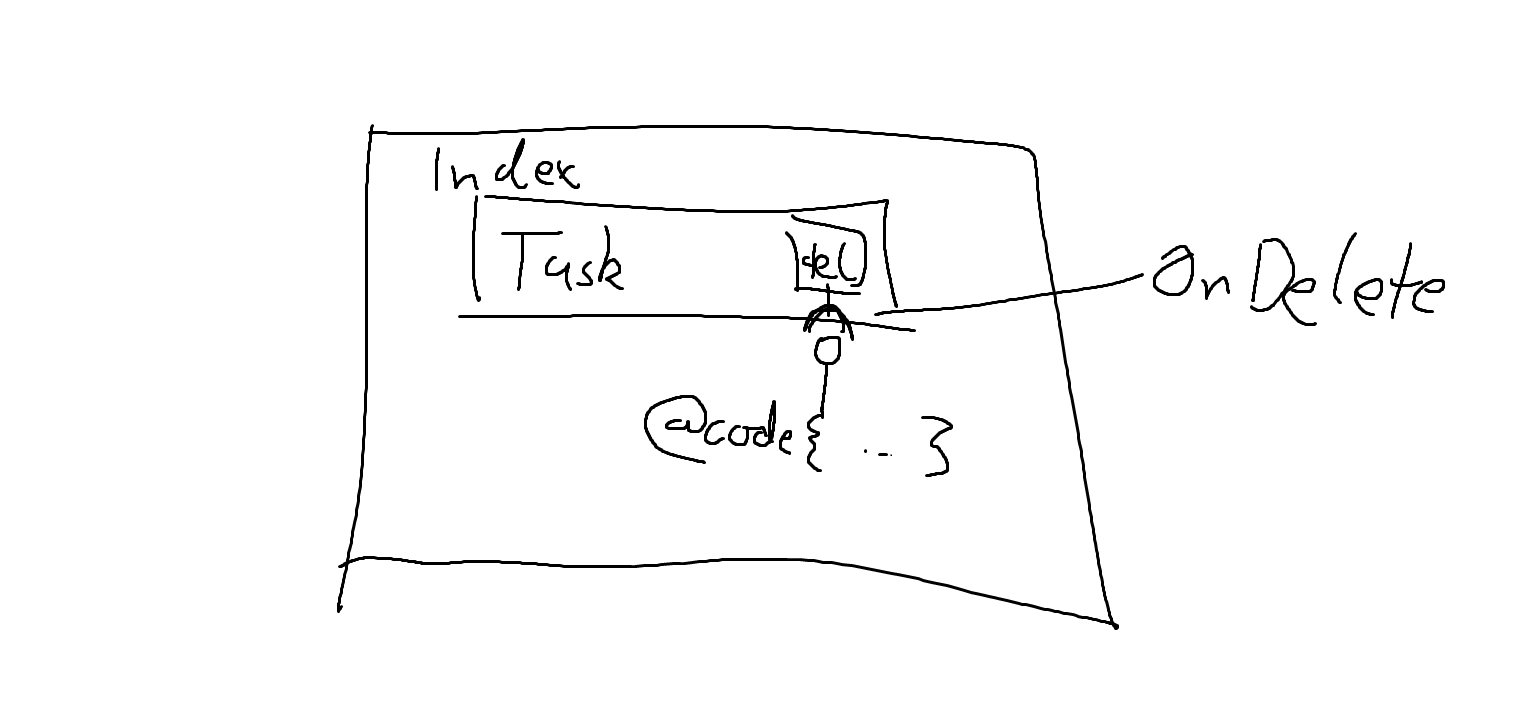 Index
Task del
OnDelete
@code{ ... }